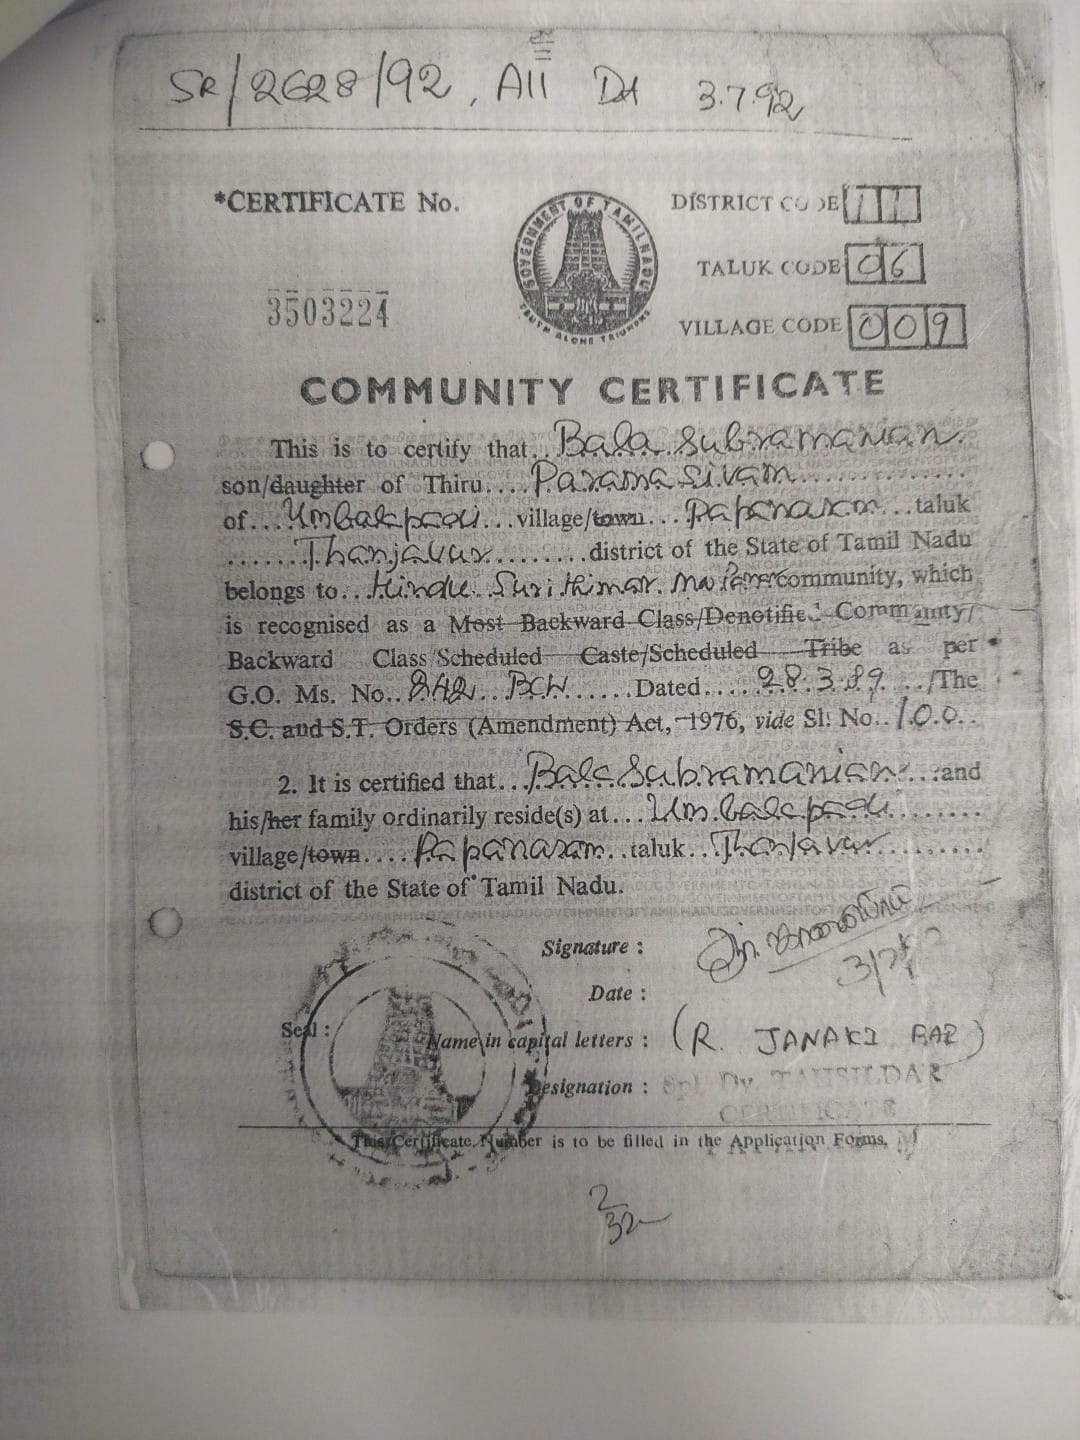 SR/2628/92, A11 Dt 3.7.92
*CERTIFICATE No.
3503224
GOVERNMENT OF TAMILNADU
TRUTH ALONE TRIUMPHS
DISTRICT CODE 11
TALUK CODE 06
VILLAGE CODE 009
COMMUNITY CERTIFICATE
This is to certify that.. Bala Subramanian.
son/daughter of Thiru.... Parama Sivam............
of... Umbalapadi...village/town... Papanasam...taluk
....... Thanjavur.........district of the State of Tamil Nadu
belongs to.. Hindu community, which
is recognised as a Most Backward Class/Denotified Community/
Backward Class/Scheduled Caste/Scheduled Tribe as per
G.O. Ms. No.. 242.. BCW......Dated..... 28.3.89.../The
S.C. and S.T. Orders (Amendment) Act, 1976, vide Sl. No.. 100..
2. It is certified that... Bala Subramanian...and
his/her family ordinarily reside(s) at... Umbalapadi........
village/town.... Papanasam..taluk.. Thanjavur..........
district of the State of Tamil Nadu.
Signature :
Date :
Seal :
Name in capital letters : (R. JANAKI RAE)
Designation : Spl Dy. TAHSILDAR
CERTIFICATE
This Certificate Number is to be filled in the Application Forms.
2
32